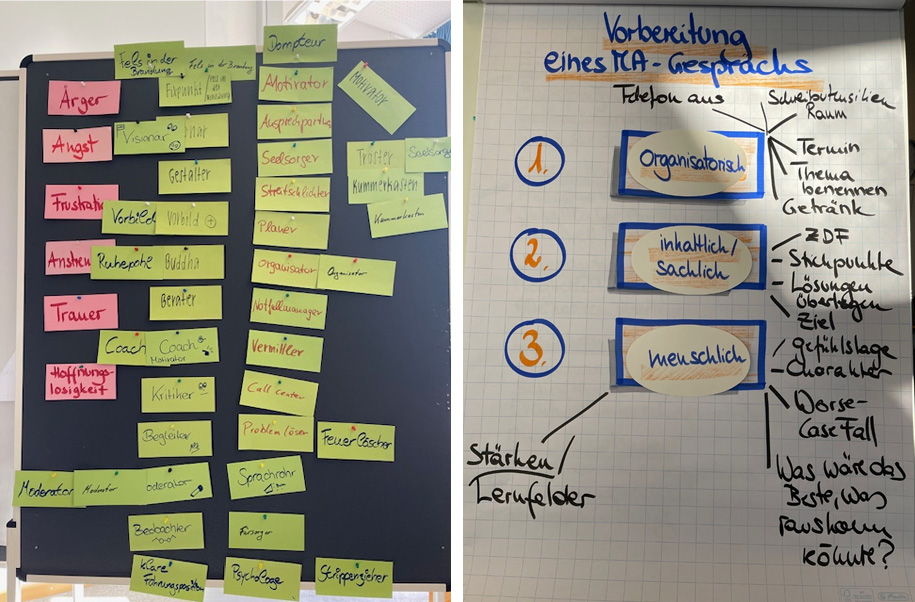 Fels in der
Brandung
Fels in der Brandung
Dompteur
Ärger
Fixpunkt/
Motivator
Motivator
Angst
Visionär
när
Ansprechpartner
Gestalter
Seelsorger
Tröster
Seelsorge
Frustratio
Streitschlichter
Kummerkasten
Vorbild
Vorbild
Planer
Kummerkasten
Anstren
Ruhepohl
Buddha
Organisator
Organisator
Trauer
Berater
Notfallmanager
Coach
Coach
Motivator
Vermittler
Hoffnungs-
losigkeit
Kritiker
Call center
Begleiter
Problemlöser
Feuerlöscher
Moderator
Moderator
oderator
Sprachrohr
Beobachter
Fürsorger
klare
Führungsposition
Psychologe
Strippenzieher
Vorbereitung
eines MA-Gesprächs
Telefon aus
Schreibutensilien
Raum
1.
Organisatorisch
Termin
Thema
benennen
Getränk
2.
inhaltlich/
sachlich
ZDF
- Stichpunkte
- Lösungen
überlegen
Ziel
3.
menschlich
Gefühlslage
- Charakter
Worse-
Case Fall
Stärken/
Lernfelder
Was wäre das
Beste, was
rauskommen
könnte?